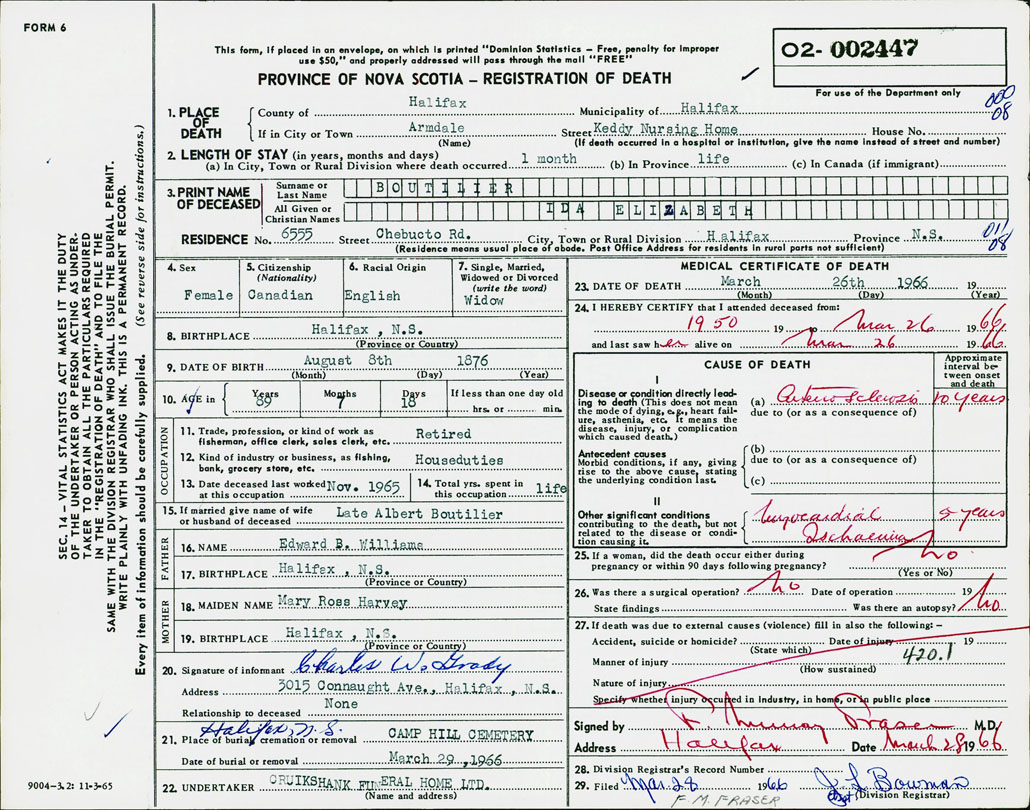 FORM 6
This form, if placed in an envelope, on which is printed "Dominion Statistics – Free, penalty for improper
use $50," and properly addressed will pass through the mail "FREE"
PROVINCE OF NOVA SCOTIA – REGISTRATION OF DEATH
02- 002447
For use of the Department only
000
08
1. PLACE OF DEATH
County of Halifax Municipality of Halifax
If in City or Town Armdale Street Keddy Nursing Home House No.
(Name) (If death occurred in a hospital or institution, give the name instead of street and number)
2. LENGTH OF STAY (in years, months and days)
(a) In City, Town or Rural Division where death occurred 1 month (b) In Province life (c) In Canada (if immigrant)
3. PRINT NAME OF DECEASED
Surname or Last Name BOUTILIER
All Given or Christian Names IDA ELIZABETH
RESIDENCE No. 6555 Street Chebucto Rd. City, Town or Rural Division Halifax Province N.S.
011
08
(Residence means usual place of abode. Post Office Address for residents in rural parts not sufficient)
4. Sex
Female
5. Citizenship
(Nationality)
Canadian
6. Racial Origin
English
7. Single, Married,
Widowed or Divorced
(write the word)
Widow
8. BIRTHPLACE Halifax, N.S.
(Province or Country)
9. DATE OF BIRTH August 8th 1876
(Month) (Day) (Year)
10. AGE in Years 89 Months 7 Days 18 If less than one day old
hrs. or min.
OCCUPATION
11. Trade, profession or kind of work as
fisherman, office clerk, sales clerk, etc. Retired
12. Kind of industry or business, as fishing,
bank, grocery store, etc. Houseduties
13. Date deceased last worked
at this occupation Nov. 1965
14. Total yrs. spent in
this occupation life
15. If married give name of wife
or husband of deceased Late Albert Boutilier
FATHER
16. NAME Edward B. Williams
17. BIRTHPLACE Halifax, N.S.
(Province or Country)
MOTHER
18. MAIDEN NAME Mary Ross Harvey
19. BIRTHPLACE Halifax, N.S.
(Province or Country)
20. Signature of informant Charles W. Grady
Address 3015 Connaught Ave., Halifax, N.S.
Relationship to deceased None
Halifax, N.S.
21. Place of burial, cremation or removal CAMP HILL CEMETERY
Date of burial or removal March 29, 1966
22. UNDERTAKER CRUIKSHANK FUNERAL HOME LTD.
(Name and address)
MEDICAL CERTIFICATE OF DEATH
23. DATE OF DEATH March 26th 1966 19
(Month) (Day) (Year)
24. I HEREBY CERTIFY that I attended deceased from:
1950 19 to Mar 26 1966
and last saw her alive on Mar 26 1966
CAUSE OF DEATH
Approximate
interval be-
tween onset
and death
I
Disease or condition directly lead-
ing to death (This does not mean
the mode of dying, e.g., heart fail-
ure, asthenia, etc. It means the
disease, injury, or complication
which caused death.)
(a) Arteriosclerosis 10 years
due to (or as a consequence of)
Antecedent causes
Morbid conditions, if any, giving
rise to the above cause, stating
the underlying condition last.
(b)
due to (or as a consequence of)
(c)
II
Other significant conditions
contributing to the death, but not
related to the disease or condi-
tion causing it.
Myocardial
Ischaemia
5 years
25. If a woman, did the death occur either during
pregnancy or within 90 days following pregnancy? no
(Yes or No)
26. Was there a surgical operation? no Date of operation 19
State findings Was there an autopsy? no
27. If death was due to external causes (violence) fill in also the following: –
Accident, suicide or homicide? Date of injury 19
(State which)
420.1
Manner of injury
(How sustained)
Nature of injury
Specify whether injury occurred in industry, in home, or in public place
Signed by R Murray Fraser M.D.
Address Halifax Date March 28 1966
28. Division Registrar's Record Number
29. Filed Mar. 28 1966 J. L. Bowman
(Division Registrar)
F. M. FRASER
SEC. 14 – VITAL STATISTICS ACT MAKES IT THE DUTY
OF THE UNDERTAKER OR PERSON ACTING AS UNDER-
TAKER TO OBTAIN ALL THE PARTICULARS REQUIRED
IN THE "REGISTRATION OF DEATH" AND TO FILE THE
SAME WITH THE DIVISION REGISTRAR WHO SHALL ISSUE THE BURIAL PERMIT.
WRITE PLAINLY WITH UNFADING INK. THIS IS A PERMANENT RECORD.
Every item of information should be carefully supplied. (See reverse side for instructions.)
9004-3.2: 11-3-65